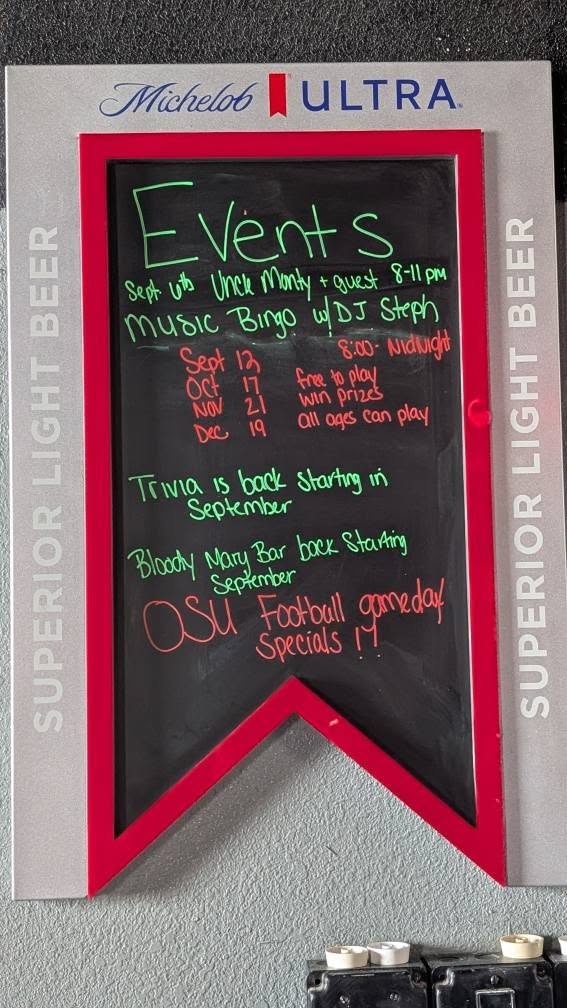 Michelob ULTRA
SUPERIOR LIGHT BEER
SUPERIOR LIGHT BEER
Events
Sept 6th Uncle Monty + guest 8-11 pm
Music Bingo w/ DJ Steph
Sept 12 8:00 - Midnight
Oct 17 free to play
Nov 21 win prizes
Dec 19 all ages can play
Trivia is back starting in
September
Bloody Mary Bar back starting
September
OSU Football gameday
Specials !!